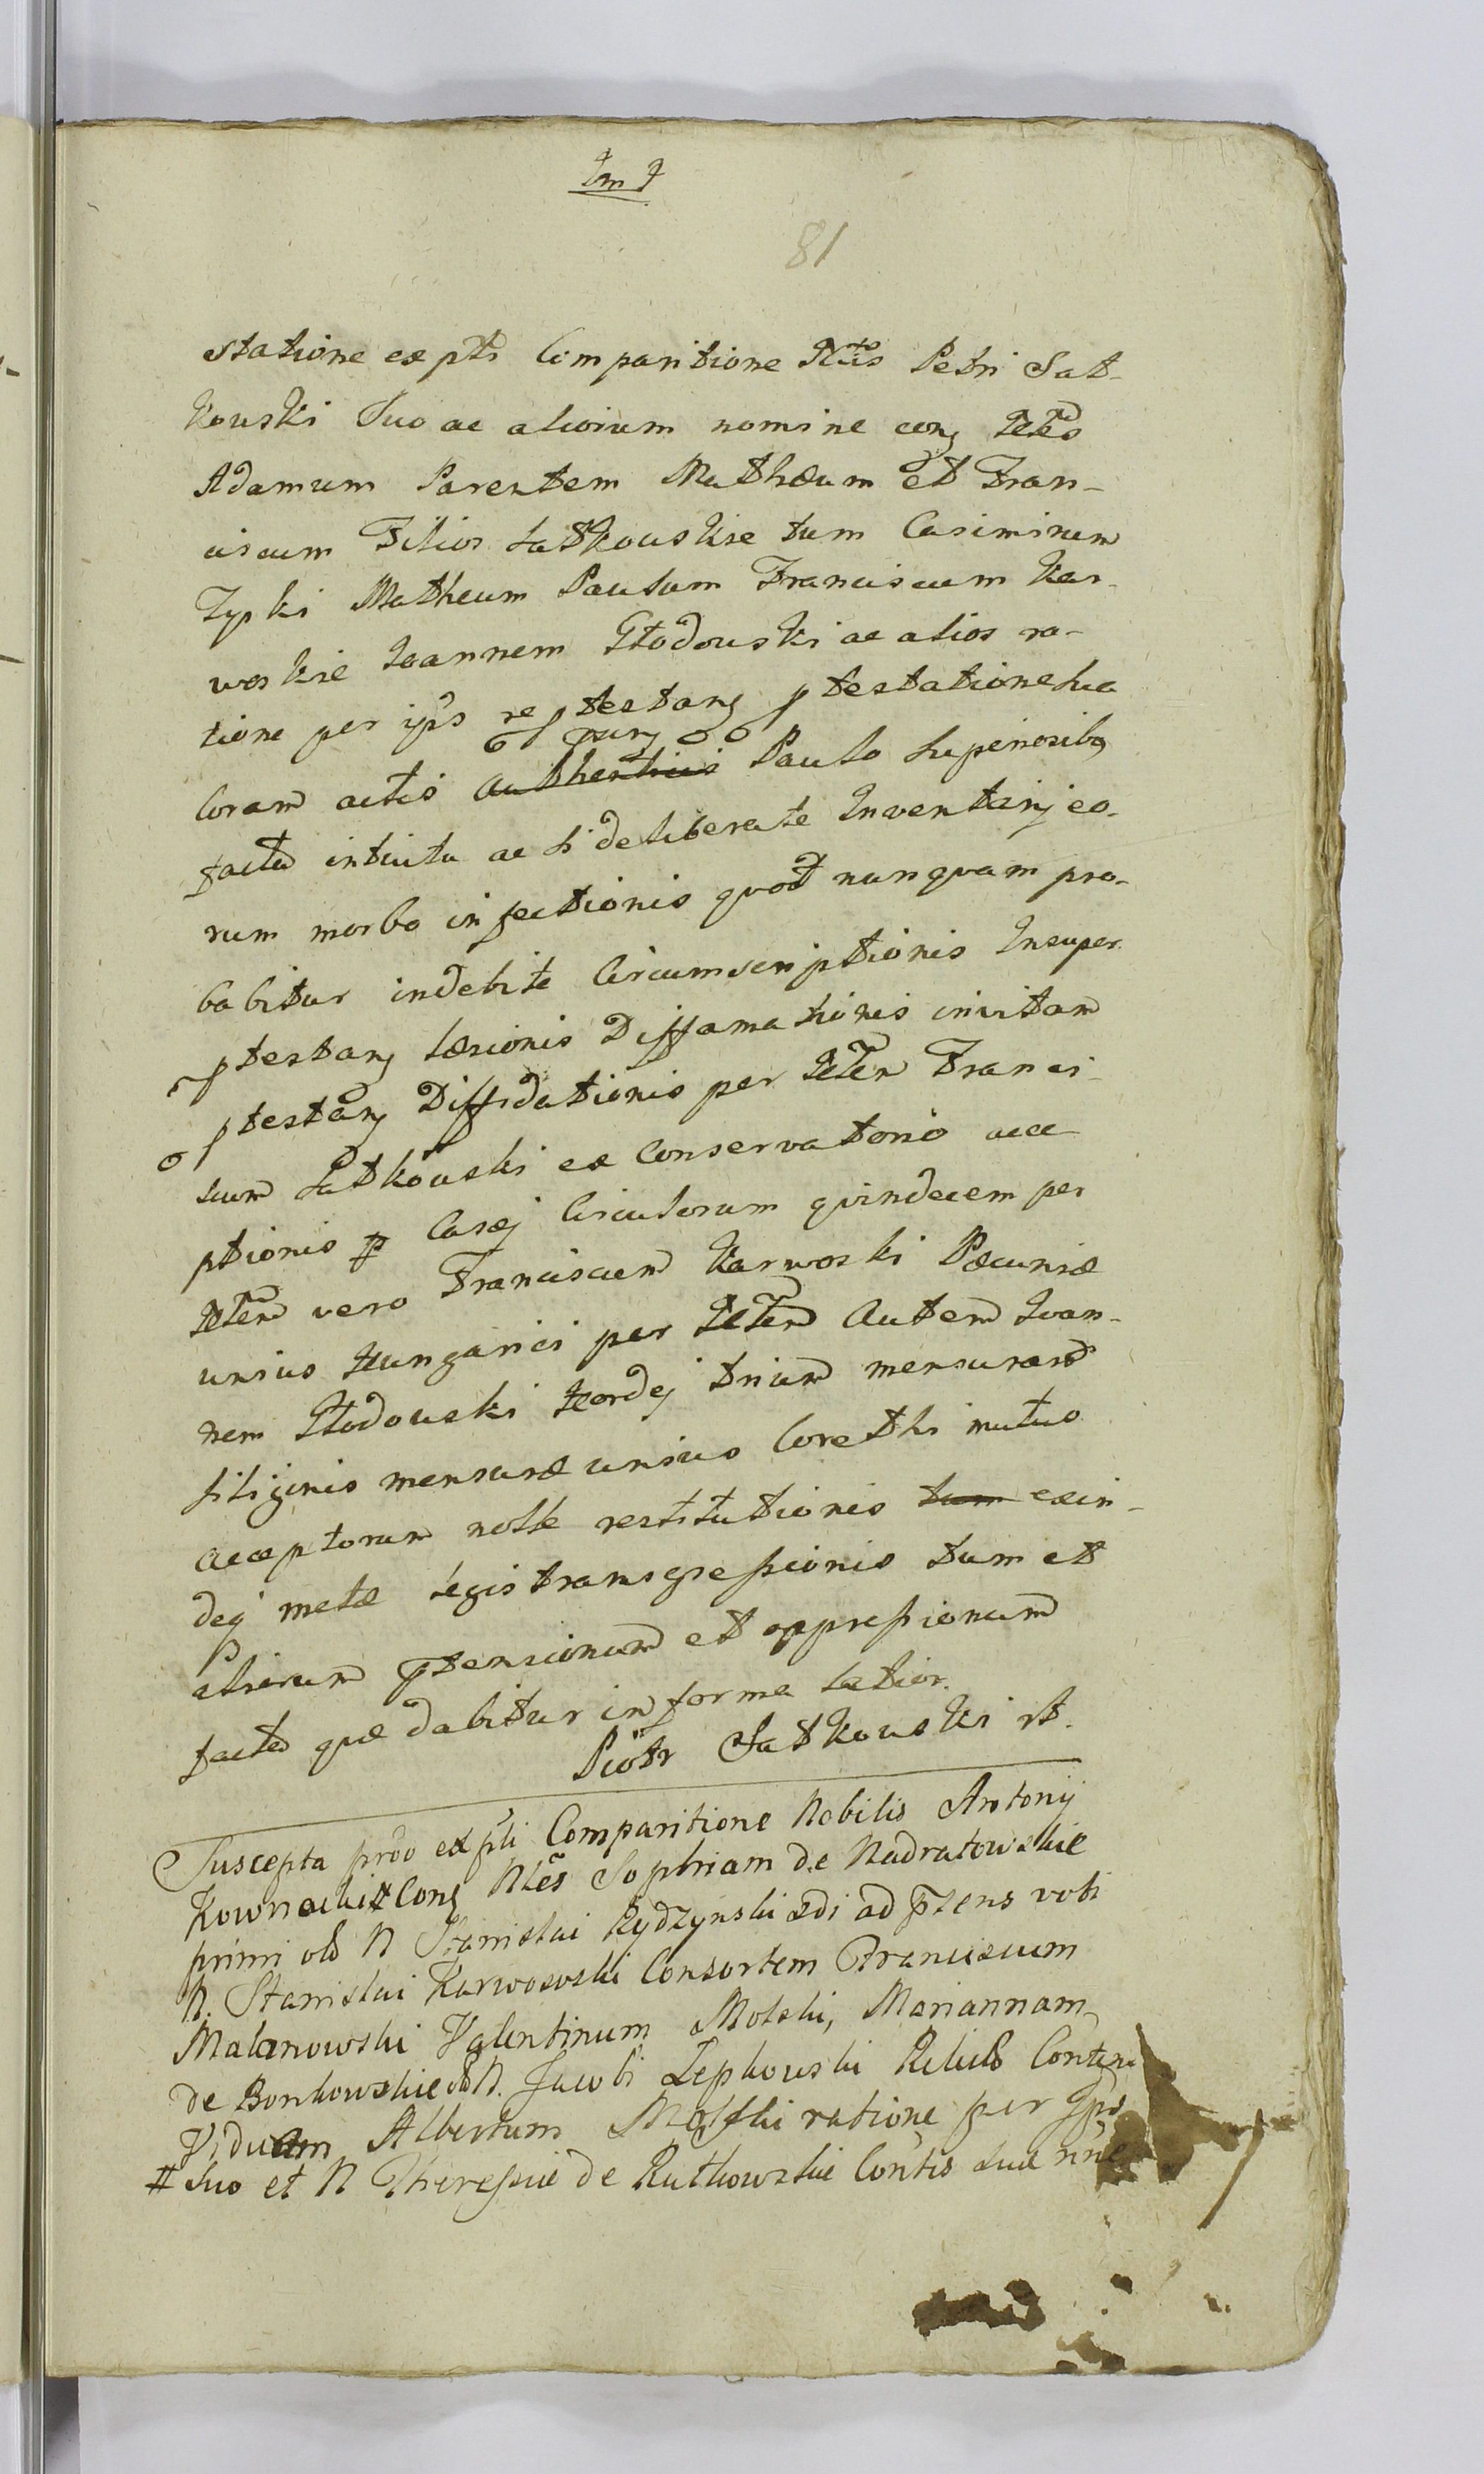 81
statione ex pti Comparitione Nlis Petri Sat-
kouski Suo ac aliorum nomine cong
Adamum Parentem Mathæum et Fran-
ciscum Filios Satkouskie tum Casimirum
Zyski Matheum Paulum Franciscum Kar-
woskie Joannem Głodouski ac alios ra-
tione per ips re ptestang ptestatione sua
Coram actis authenticis Paulo superioribq
facta intuitu ac si deliberate Inventarj eo-
rum morbo infectionis quod nunquam pro-
babitur indebite Circumscriptionis Insuper
ptestang læsionis Diffamationis invitam
ptestang Diffidationis per Franci-
scum Satkouski ex Conservatorio acce-
ptionis Casej Circulorum quindecem per
vero Franciscum Karwoski Pæcuniæ
unius Hungarici per autem Joan-
nem Głodouski Hordej trium mensurarum
siliginis mensuræ unius Corethi mutuo
acceptorum nolle restitutionis tum exin-
deq metæ legis transgressionis tum et
aliarum ptensionum et oppressionum
facta quæ dabitur in forma latior.
Piotr Satkouski
Suscepta prvo ex pti Comparitione Nobilis Antonij
Kownacki # Cong Nles Sophiam de Nadratowskie
primi olo N Stanislai Rydzynski 2di ad psens voti
N. Stanislai Karwosski Consortem Franciscum
Malanowski Valentinum Molski, Mariannam
de Bonkowskie N. Jacobi Lepkouski
Viduam Albertum ratione per Ips
# Suo et N Theressie de Rutkowskie Contis suæ nne